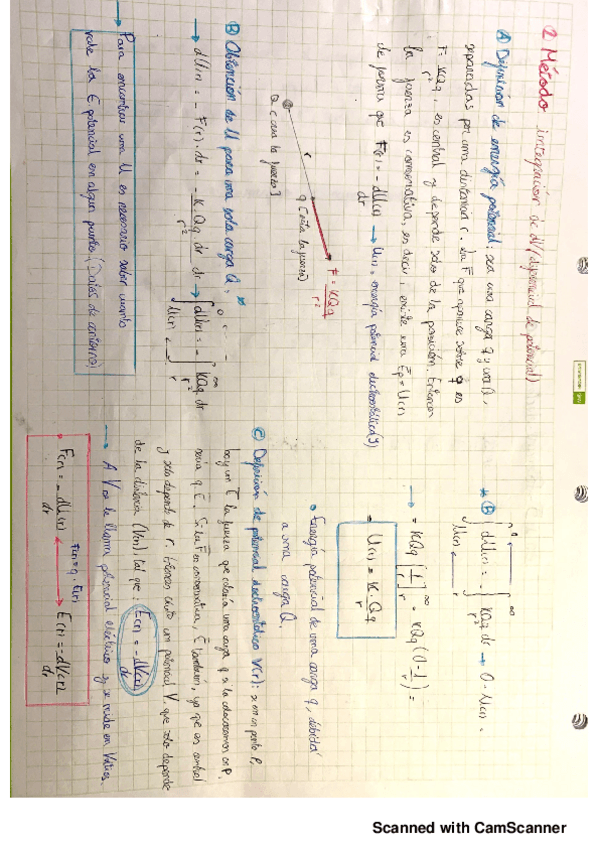 2 Método: integración de dV (diferencial de potencial)
A Definición de energía potencial: sea una carga q y una Q,
separadas por una distancia r. La F que aparece sobre q es
F = KQq/r², es central y depende solo de la posición. Entonces
la fuerza es conservativa, es decir, existe una Ep = U(r)
de forma que F(r) = - dU(r)/dr → U(r), energía potencial electrostática (J)
F = KQq/r²
r
q (esta la fuerza)
Q crea la fuerza
B Obtención de U para una sola carga Q,
→ dU(r) = - F(r) · dr = - KQq/r² dr → ∫ dU(r) = - ∫ KQq/r² dr
→ Para encontrar una U es necesario saber cuanto
vale la E potencial en algun punto. (Datos de entorno)
B ∫ dU(r) = - ∫ KQq/r² dr → 0 - U(r) =
= KQq [1/r] = KQq (0 - 1/r) =
= U(r) = K · Qq/r
• Energía potencial de una carga q, debida
a una carga Q.
C Definición de potencial electrostático V(r): si en un punto P,
hay un E la fuerza que estaría una carga q si la colocásemos en P
sería q · E. Si la F es conservativa, E también, ya que es central
y solo depende de r. Existe un potencial V, que solo depende
de la distancia (V(r)), tal que: E(r) = - dV(r)/dr
→ A V se le llama potencial eléctrico y se mide en Voltios.
F(r) = q · E(r)
F(r) = - dU(r)/dr ↔ E(r) = - dV(r)/dr
Scanned with CamScanner